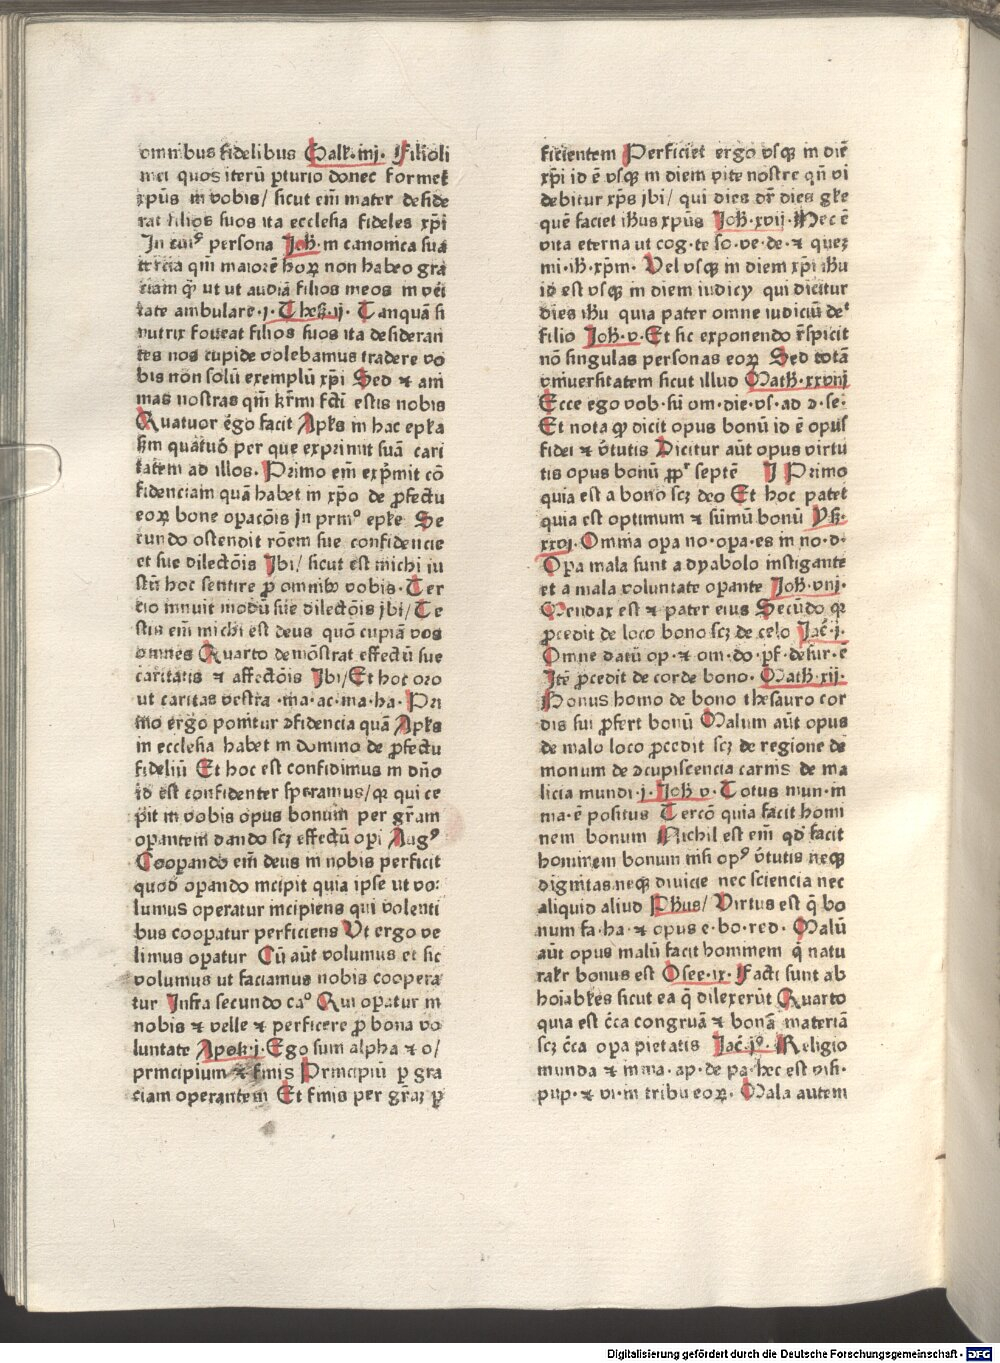 omnibus fidelibus Galł·iiij· Filioli
mei quos iterū ꝑturio donec formeť
xpūs in vobis/ sicut em̄ mater deside
rat filios suos ita ecclesia fideles xp̄i
In cuiꝰ persona Joh̄·in canonica sua
tercia qm̄ maiorē hoꝝ non habeo gra
ciam q̄ ut ut audiā filios meos in ve̓i
tate ambulare·j·Thesz̄·ij· Tanquā si
nutrix foveat filios suos ita desideran
tes nos cupide volebamus tradere vo
bis non solū exemplū xp̄i Sed ⁊ ani
mas nostras qm̄ kr̄mi fc̄ti estis nobis
Quatuor ergo facit Apłs in hac epła
Sm̄ quatuō per que exprimit suā cari
tatem ad illos· Primo em̄ exp̄mit cō
fidenciam quā habet in xp̄o de ꝓfectu
eoꝝ bone oꝑacōis in prinᵒ epłe Se
cundo ostendit rōem sue confidencie
et sue dilectōis Jbi/ sicut est michi iu
stū hoc sentire ꝓ omnibꝫ vobis· Ter
cio innuit modū sue dilectōis jbi/ Te
stis em̄ michi est deus quō cupiā vos
omnes Quarto demōstrat effectū sue
caritatis ⁊ affectōis Jbi/ Et hoc oro
ut caritas vestra ·ma·ac·ma·ha·Pri
mo ergo ponitur ↄfidencia quā Apłs
in ecclesia habet in domino de ꝓfectu
fideliū Et hoc est confidimus in dn̄o
id est confidenter speramus/ qꝛ qui ce
pit in vobis opus bonum per gr̄am
oꝑantem dando scꝫ effectū opi Augꝰ
Cooꝑando em̄ deus in nobis perficit
quod oꝑando incipit quia ipse ut vo:
lumus operatur incipiens qui volenti
bus cooꝑatur perficiens Ut ergo ve
limus oꝑatur Cū aūt volumus et sic
volumus ut faciamus nobis coopera
tur Infra secundo caᵒ Qui oꝑatur in
nobis ⁊ velle ⁊ perficere ꝓ bona vo
luntate Apok̄·j·Ego sum alpha ⁊ o/
principium ⁊ finis Principiū ꝑ gra
ciam operantem Et finis per gr̄aꝫ ꝑ
ficientem Perficiet ergo vsqꝫ in diē
xp̄i id ē vsqꝫ in diem vite nostre qn̄ vi
debitur xp̄s jbi/ qui dies dr̄ dies głe
quē faciet ih̄us xpūs Joh̄·xvij·Hec ē
vita eterna ut cog·te so·ve·de·⁊ queꝫ
mi·ih̄·xp̄m· Vel vsqꝫ in diem xp̄i ih̄u
id est vsqꝫ in diem iudicy qui dicitur
dies ih̄u quia pater omne iudiciū de᷒
filio Joh̄·v·Et sic exponendo r̄spicit
nō singulas personas eoꝝ Sed totā
vniuersitatem sicut illud Math̄·xxviij
Ecce ego vob·sū om·die·vs·ad ↄ·se·
Et nota qꝙ dicit opus bonū id ē opus
fidei ⁊ v̄tutis Dicitur aūt opus virtu
tis opus bonū ꝓpʳ septē J Primo
quia est a bono scꝫ deo Et hoc patet
quia est optimum ⁊ sūmū bonū Ysꝫ·
xxvj·Omnia oꝑa no·oꝑa·es in no·d·
Oꝑa mala sunt a dyabolo instigante
et a mala voluntate oꝑante Joh̄·viij·
Mendax est ⁊ pater eius Secūdo qꝛ
ꝓcedit de loco bono scꝫ de celo Jac̄·j·
Omne datū op·⁊ om·do·pf̄·desur·ē
Jtē ꝓcedit de corde bono· Math̄·xij·
Bonus homo de bono thesauro cor
dis sui ꝓfert bonū Malum aūt opus
de malo loco ꝓcedit scꝫ de regione de
monum de ↄcupiscencia carnis de ma
licia mundi·j·Joh̄ v· Totus mun·in
ma·ē positus Tercō quia facit homi
nem bonum Nichil est em̄ qd̓ facit
hominem bonum nisi opꝰ v̄tutis neqꝫ
dignitas neqꝫ divicie nec sciencia nec
aliquid aliud Ph̄us/ Virtus est q̄ bo
num fa·ha·⁊ opus e·bo·red· Malū
aūt opus malū facit hominem q̄ natu
ralr̓ bonus est Osee·ix·Facti sunt ab
hoīabłes sicut ea q̄ dilexerūt Quarto
quia est c̄ca congruā ⁊ bonā materiā
scꝫ c̄ca oꝑa pietatis Jac̄·jᵒ·Religio
munda ⁊ inma·ap·de pa·hec est visi·
pup·⁊ vi·in tribu eoꝝ· Mala autem
Digitalisierung gefördert durch die Deutsche Forschungsgemeinschaft - DFG